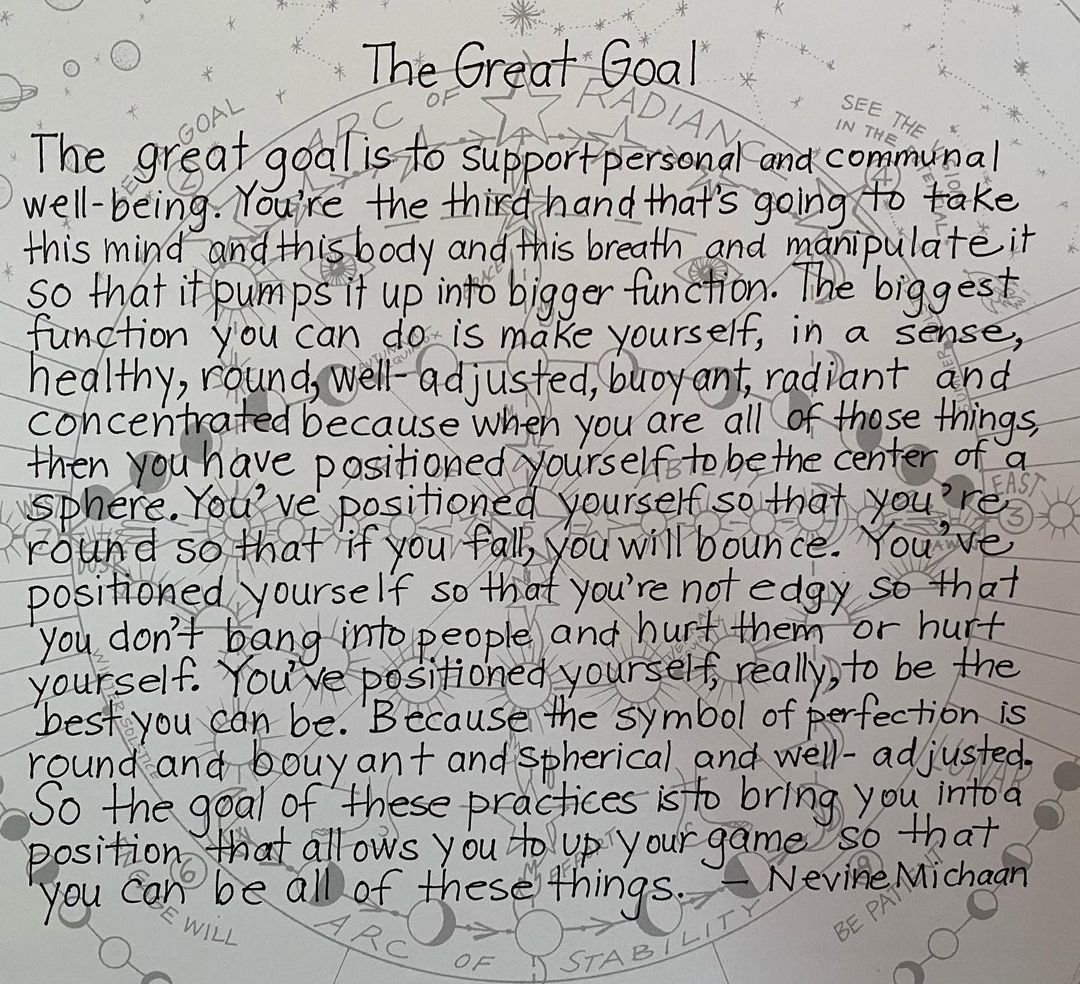 The Great Goal
The great goal is to support personal and communal
well-being. You're the third hand that's going to take
this mind and this body and this breath and manipulate it
so that it pumps it up into bigger function. The biggest
function you can do is make yourself, in a sense,
healthy, round, well-adjusted, buoyant, radiant and
concentrated because when you are all of those things,
then you have positioned yourself to be the center of a
sphere. You've positioned yourself so that you're
round so that if you fall, you will bounce. You've
positioned yourself so that you're not edgy so that
you don't bang into people and hurt them or hurt
yourself. You've positioned yourself, really, to be the
best you can be. Because the symbol of perfection is
round and bouyant and spherical and well-adjusted.
So the goal of these practices is to bring you into a
position that allows you to up your game so that
you can be all of these things. — Nevine Michaan
ARC OF RADIANCE
GOAL
SEE THE
IN THE
EAST
3
4
6
BE WILL
ARC OF STABILITY
LUNAR